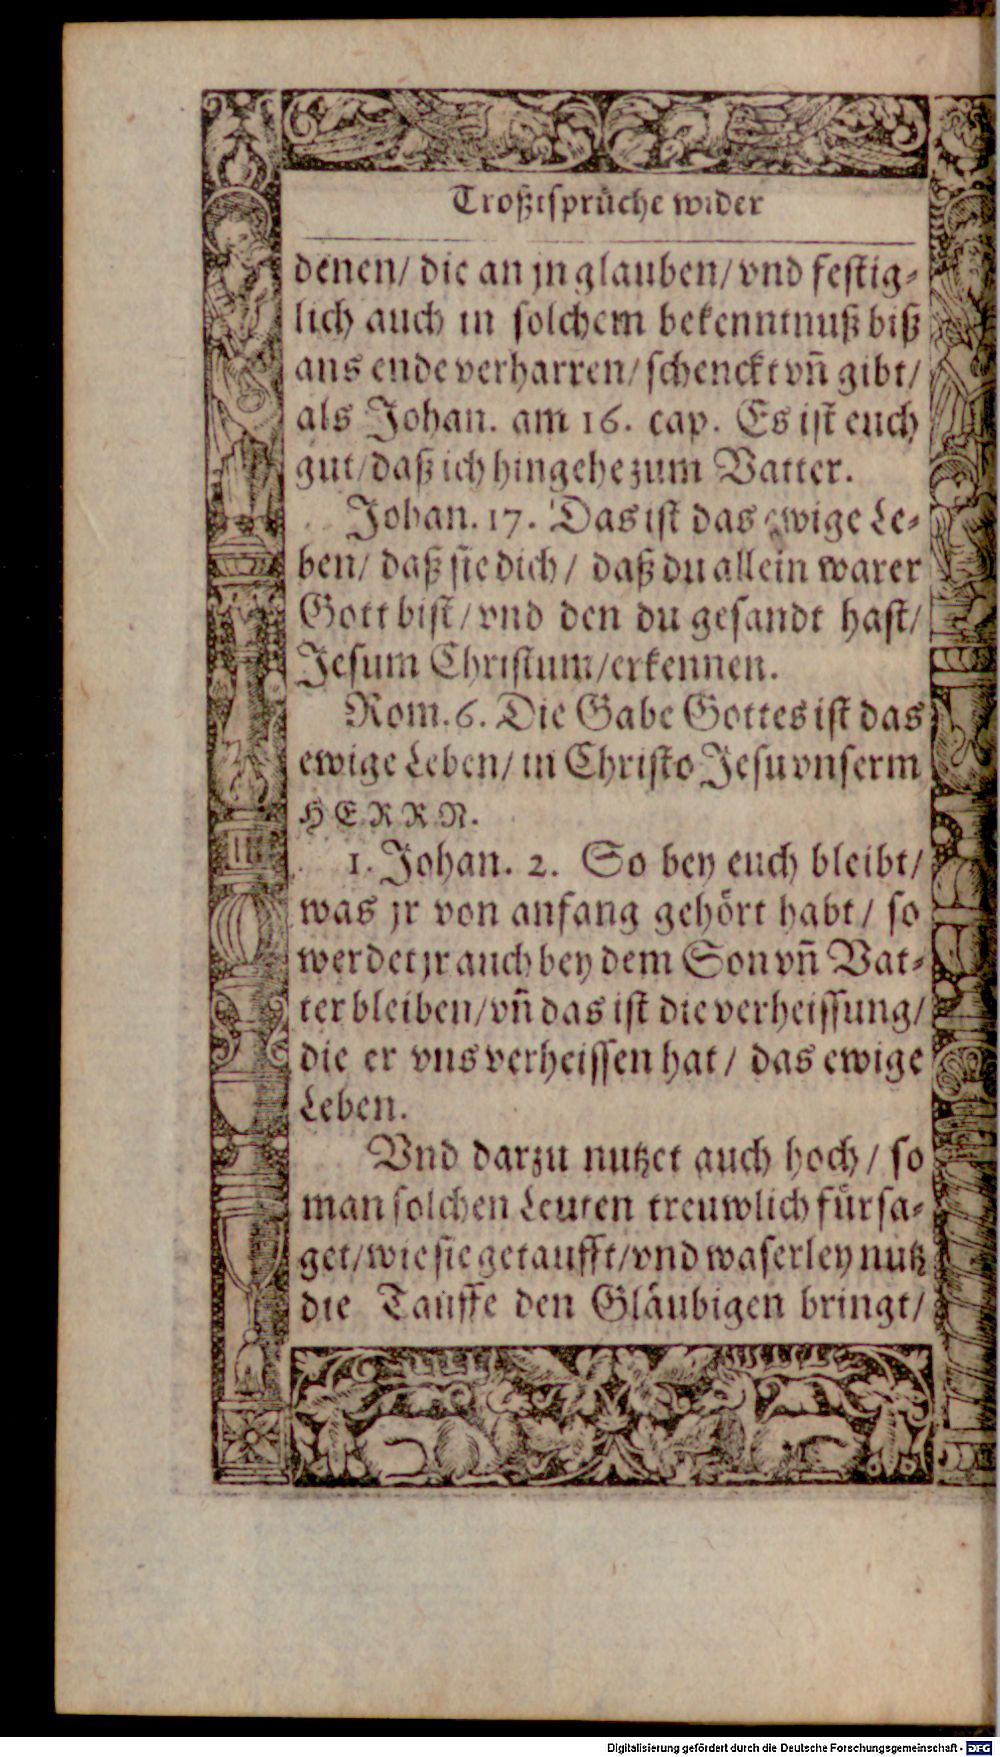 Troßtsprüche wider
denen/ die an jn glauben/ vnd festig-
lich auch in solchem bekenntnuß biß
ans ende verharren/ schenckt vñ gibt/
als Johan. am 16. cap. Es ist euch
gut/ daß ich hingehe zum Vatter.
Johan. 17. Das ist das ewige Le-
ben/ daß sie dich/ daß du allein warer
Gott bist/ vnd den du gesandt hast/
Jesum Christum/ erkennen.
Rom. 6. Die Gabe Gottes ist das
ewige Leben/ in Christo Jesu vnserm
HERRN.
1. Johan. 2. So bey euch bleibt/
was jr von anfang gehört habt/ so
werdet jr auch bey dem Son vñ Vat-
ter bleiben/ vñ das ist die verheissung/
die er vns verheissen hat/ das ewige
Leben.
Vnd darzu nutzet auch hoch/ so
man solchen Leuten treuwlich fürsa-
get/ wie sie getaufft/ vnd waserley nutz
die Tauffe den Gläubigen bringt/
Digitalisierung gefördert durch die Deutsche Forschungsgemeinschaft - DFG